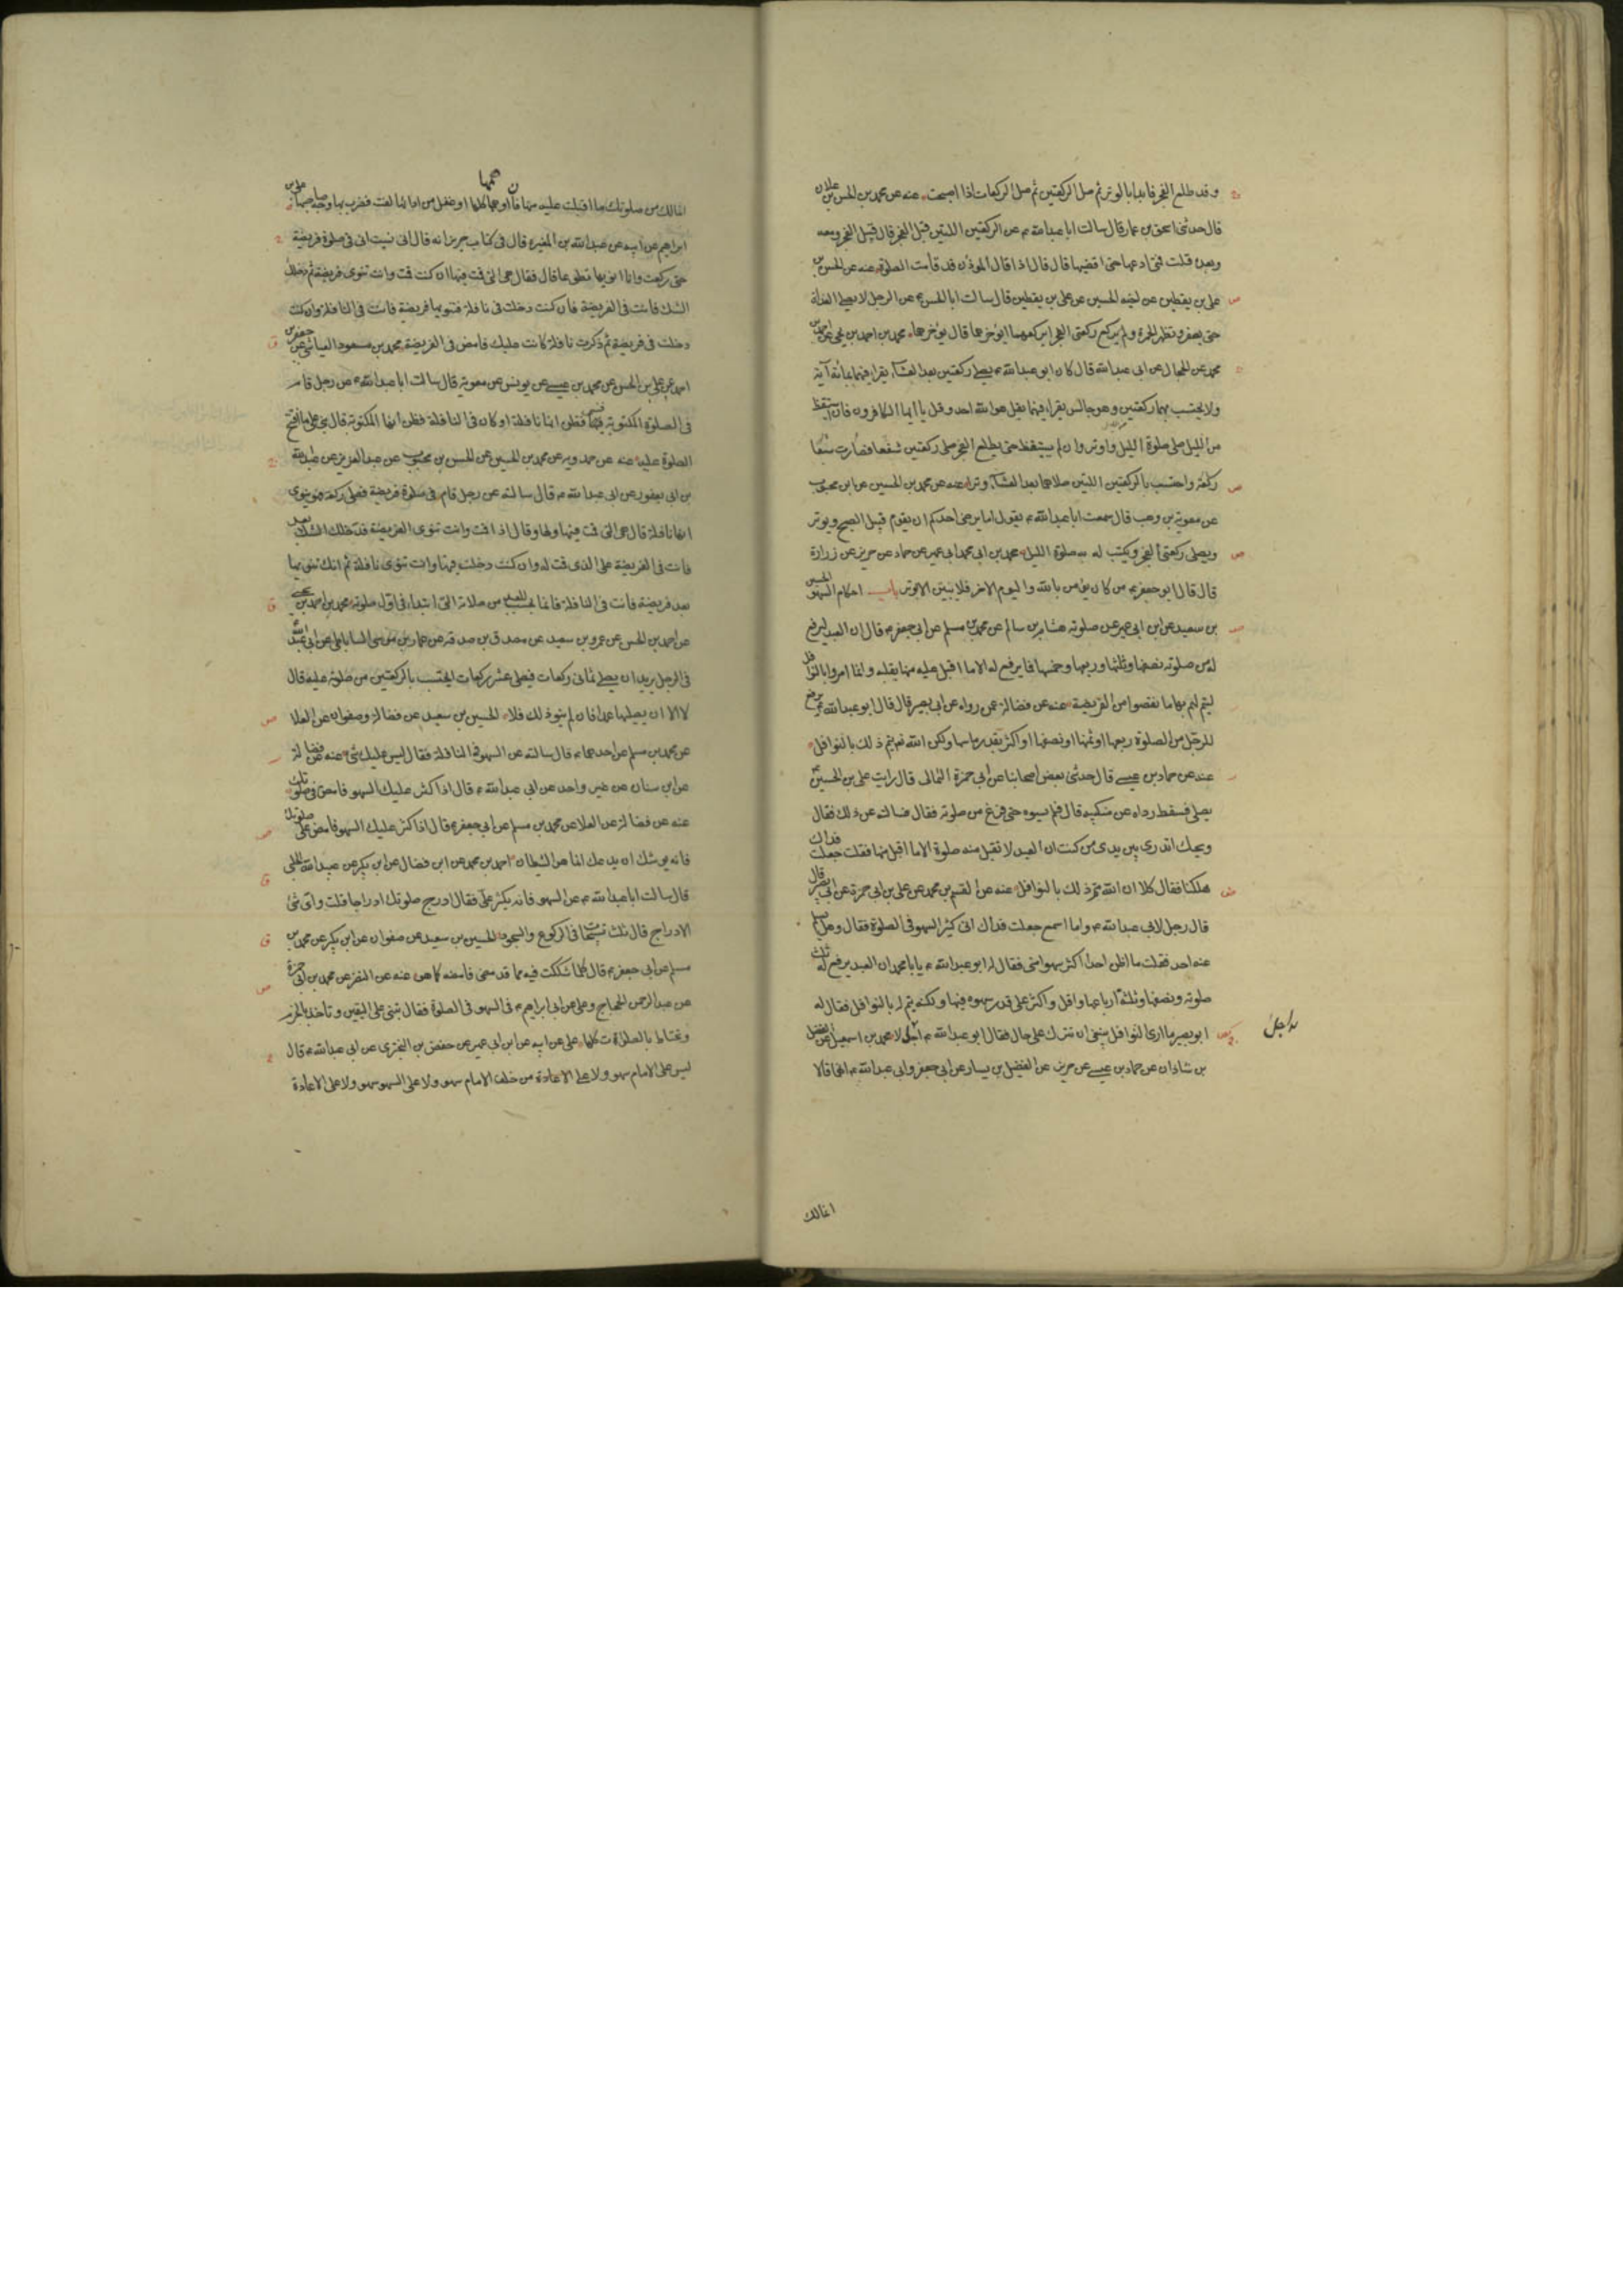 وقد طلع الفجر فابدا بالوتر ثم صل الركعتين ثم صل الركعات اذا اصبحت عنه عن محمد بن الحسن بن علان
قال حدثنى اسحق بن عمار قال سالت ابا عبد الله ع عن الركعتين اللتين قبل الفجر قال قبل الفجر ومعه
وبعده قلت فمتى ادعهما حتى اقضيهما قال قال اذا قال المؤذن قد قامت الصلوة عنه عن الحسن بن
على بن يقطين عن اخيه الحسين عن على بن يقطين قال سالت ابا الحسن ع عن الرجل لا يصلى الغداة
حتى يسفر وتظهر الحمرة ولم يركع ركعتى الفجر ايركعهما او يؤخرهما قال يؤخرهما محمد بن احمد بن يحيى عن احمد بن
محمد عن الحجال عن ابى عبد الله قال كان ابو عبد الله ع يصلى ركعتين بعد العشاء يقرا فيهما بمائة آية
ولا يحتسب بهما وركعتين وهو جالس يقرا فيهما بقل هو الله احد وقل يا ايها الكافرون فان استيقظ
من الليل صلى صلوة الليل واوتر وان لم يستيقظ حتى يطلع الفجر صلى ركعتين شفعا فصارت شفعا
ركعة واحتسب بالركعتين اللتين صلاهما بعد العشاء وترا عنه عن محمد بن الحسين عن ابن محبوب
عن معوية بن وهب قال سمعت ابا عبد الله ع يقول اما يرضى احدكم ان يقوم قبل الصبح ويوتر
ويصلى ركعتى الفجر ويكتب له صلوة الليل محمد بن ابى عمير عن حماد عن حريز عن زرارة
قال قال ابو جعفر ع من كان يؤمن بالله واليوم الاخر فلا يبيتن الا بوتر باب احكام السهو الحسين
بن سعيد عن ابن ابى عمير عن هشام بن سالم عن محمد بن مسلم عن ابى جعفر ع قال ان العبد ليرفع
له من صلوته نصفها وثلثها وربعها وخمسها فما يرفع له الا ما اقبل عليه منها بقلبه وانما امروا بالنوافل
ليتم لهم بها ما نقصوا من الفريضة عنه عن فضالة عن رواه عن ابى بصير قال قال ابو عبد الله ع يرفع
للرجل من الصلوة ربعها او ثمنها او نصفها او اكثر بقدر ما سها ولكن الله تع يتم ذلك بالنوافل
عنه عن حماد بن عيسى قال حدثنى بعض اصحابنا عن ابى حمزة الثمالى قال رايت على بن الحسين ع
يصلى فسقط رداه عن منكبيه قال فلم يسوه حتى فرغ من صلوته فقال فسالته عن ذلك فقال
ويحك اتدرى بين يدى من كنت ان العبد لا تقبل منه صلوة الا ما اقبل منها فقلت جعلت فداك
هلكنا فقال كلا ان الله متم ذلك بالنوافل عنه عن القسم بن محمد عن على بن ابى حمزة عن ابى بصير قال
قال رجل لابى عبد الله ع وانا اسمع جعلت فداك انى كثير السهو فى الصلوة فقال وهل يسلم
منه احد فقلت ما اظن احدا اكثر سهوا منى فقال له ابو عبد الله ع يا با محمد ان العبد يرفع له ثلث
صلوته ونصفها وثلثة ارباعها واقل واكثر على قدر سهوه فيها ولكنه يتم له بالنوافل فقال له
ابو بصير ما ارى النوافل ينبغى ان تترك على حال فقال ابو عبد الله ع اجل لا محمد بن اسمعيل عن الفضل
بن شاذان عن حماد بن عيسى عن حريز عن الفضيل بن يسار عن ابى جعفر وابى عبد الله ع انهما قالا
اجل
انما لك
انما لك من صلوتك ما اقبلت عليه منها فان اوهمها كلها او غفل من ادائها لفت فضرب بها وجه صاحبها على بن
ابراهيم عن ابيه عن عبد الله بن المغيرة قال فى كتاب حريز انه قال انى نسيت انى فى صلوة فريضة
حتى ركعت وانا انويها تطوعا قال فقال هى التى قمت فيها ان كنت قمت وانت تنوى فريضة ثم دخلك
الشك فانت فى الفريضة فان كنت دخلت فى نافلة فنويتها فريضة فانت فى النافلة وان كنت
دخلت فى فريضة ثم ذكرت نافلة كانت عليك فامض فى الفريضة محمد بن مسعود العياشى عن جعفر بن
احمد عن على بن الحسن عن محمد بن عيسى عن يونس عن معوية قال سالت ابا عبد الله ع عن رجل قام
فى الصلوة المكتوبة فسهى فظن انها نافلة او كان فى النافلة فظن انها المكتوبة قال هى على ما افتتح
الصلوة عليه عنه عن حمدويه عن محمد بن الحسين عن الحسن بن محبوب عن عبد العزيز عن عبد الله
بن ابى يعفور عن ابى عبد الله ع قال سالته عن رجل قام فى صلوة فريضة فصلى ركعة وهو ينوى
انها نافلة قال هى التى قمت فيها ولها وقال اذا قمت وانت تنوى الفريضة فدخلك الشك بعد
فانت فى الفريضة على الذى قمت له وان كنت دخلت فيها وانت تنوى نافلة ثم انك تنويها
بعد فريضة فانت فى النافلة فانما يحسب للعبد من صلاته التى ابتدا فى اول صلوته محمد بن احمد بن يحيى
عن احمد بن الحسن عن عمرو بن سعيد عن مصدق بن صدقه عن عمار بن موسى الساباطى عن ابى عبد الله ع
فى الرجل يريد ان يصلى ثمانى ركعات فيصلى عشر ركعات ايحتسب بالركعتين من صلوة عليه قال
لا الا ان يصليها عمدا فان لم ينو ذلك فلا الحسين بن سعيد عن فضالة وصفوان عن العلا
عن محمد بن مسلم عن احدهما ع قال سالته عن السهو فى النافلة فقال ليس عليك شئ عنه عن فضالة
عن ابن سنان عن غير واحد عن ابى عبد الله ع قال اذا كثر عليك السهو فامض فى صلوتك
عنه عن فضالة عن العلا عن محمد بن مسلم عن ابى جعفر ع قال اذا كثر عليك السهو فامض على صلوتك
فانه يوشك ان يدعك انما هو الشيطان احمد بن محمد عن ابن فضال عن ابن بكير عن عبيد الله الحلبى
قال سالت ابا عبد الله ع عن السهو فانه يكثر على فقال ادرج صلوتك ادراجا قلت واى شئ
الادراج قال ثلث تسبيحات فى الركوع والسجود الحسين بن سعيد عن صفوان عن ابن بكير عن محمد بن
مسلم عن ابى جعفر ع قال كلما شككت فيه مما قد مضى فامضه كما هو عنه عن النضر عن محمد بن ابى حمزة
عن عبد الرحمن الحجاج وعلى عن ابى ابراهيم ع فى السهو فى الصلوة فقال تبنى على اليقين وتاخذ بالجزم
وتحتاط بالصلوة كلها على عن ابيه عن ابن ابى عمير عن حفص بن البخترى عن ابى عبد الله ع قال
ليس على الامام سهو ولا على الاعادة من خلف الامام سهو ولا على السهو سهو ولا على الاعادة